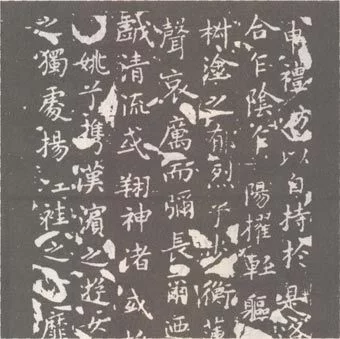 申禮防以自持於是洛
合乍陰乍陽擢輕軀
椒塗之郁烈兮步衡薄
聲哀厲而彌長爾迺
戲清流或翔神渚或
姚兮攜漢濱之遊女
之獨處揚江袿之靡